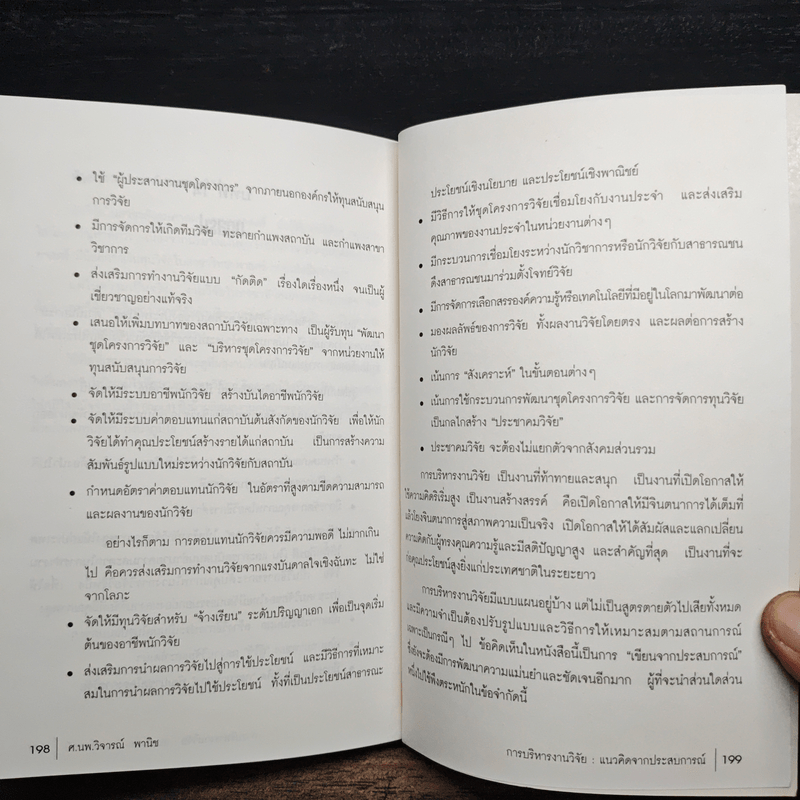 • ใช้ "ผู้ประสานงานชุดโครงการ" จากภายนอกองค์กรให้ทุนสนับสนุน
การวิจัย
• มีการจัดการให้เกิดทีมวิจัย ทะลายกำแพงสถาบัน และกำแพงสาขา
วิชาการ
• ส่งเสริมการทำงานวิจัยแบบ "กัดติด" เรื่องใดเรื่องหนึ่ง จนเป็นผู้
เชี่ยวชาญอย่างแท้จริง
• เสนอให้เพิ่มบทบาทของสถาบันวิจัยเฉพาะทาง เป็นผู้รับทุน "พัฒนา
ชุดโครงการวิจัย" และ "บริหารชุดโครงการวิจัย" จากหน่วยงานให้
ทุนสนับสนุนการวิจัย
• จัดให้มีระบบอาชีพนักวิจัย สร้างบันไดอาชีพนักวิจัย
• จัดให้มีระบบค่าตอบแทนแก่สถาบันต้นสังกัดของนักวิจัย เพื่อให้นัก
วิจัยได้ทำคุณประโยชน์สร้างรายได้แก่สถาบัน เป็นการสร้างความ
สัมพันธ์รูปแบบใหม่ระหว่างนักวิจัยกับสถาบัน
• กำหนดอัตราค่าตอบแทนนักวิจัย ในอัตราที่สูงตามขีดความสามารถ
และผลงานของนักวิจัย
อย่างไรก็ตาม การตอบแทนนักวิจัยควรมีความพอดี ไม่มากเกิน
ไป คือควรส่งเสริมการทำงานวิจัยจากแรงบันดาลใจเชิงฉันทะ ไม่ใช่
จากโลภะ
• จัดให้มีทุนวิจัยสำหรับ "จ้างเรียน" ระดับปริญญาเอก เพื่อเป็นจุดเริ่ม
ต้นของอาชีพนักวิจัย
• ส่งเสริมการนำผลการวิจัยไปสู่การใช้ประโยชน์ และมีวิธีการที่เหมาะ
สมในการนำผลการวิจัยไปใช้ประโยชน์ ทั้งที่เป็นประโยชน์สาธารณะ
198 ศ.นพ.วิจารณ์ พานิช
ประโยชน์เชิงนโยบาย และประโยชน์เชิงพาณิชย์
• มีวิธีการให้ชุดโครงการวิจัยเชื่อมโยงกับงานประจำ และส่งเสริม
คุณภาพของงานประจำในหน่วยงานต่างๆ
• มีกระบวนการเชื่อมโยงระหว่างนักวิชาการหรือนักวิจัยกับสาธารณชน
ดึงสาธารณชนมาร่วมตั้งโจทย์วิจัย
• มีการจัดการเลือกสรรองค์ความรู้หรือเทคโนโลยีที่มีอยู่ในโลกมาพัฒนาต่อ
• มองผลลัพธ์ของการวิจัย ทั้งผลงานวิจัยโดยตรง และผลต่อการสร้าง
นักวิจัย
• เน้นการ "สังเคราะห์" ในขั้นตอนต่างๆ
• เน้นการใช้กระบวนการพัฒนาชุดโครงการวิจัย และการจัดการทุนวิจัย
เป็นกลไกสร้าง "ประชาคมวิจัย"
• ประชาคมวิจัย จะต้องไม่แยกตัวจากสังคมส่วนรวม
การบริหารงานวิจัย เป็นงานที่ท้าทายและสนุก เป็นงานที่เปิดโอกาสให้
ใช้ความคิดริเริ่มสูง เป็นงานสร้างสรรค์ คือเปิดโอกาสให้มีจินตนาการได้เต็มที่
แล้วโยงจินตนาการสู่สภาพความเป็นจริง เปิดโอกาสให้ได้สัมผัสและแลกเปลี่ยน
ความคิดกับผู้ทรงคุณความรู้และมีสติปัญญาสูง และสำคัญที่สุด เป็นงานที่จะ
ก่อคุณประโยชน์สูงยิ่งแก่ประเทศชาติในระยะยาว
การบริหารงานวิจัยมีแบบแผนอยู่บ้าง แต่ไม่เป็นสูตรตายตัวไปเสียทั้งหมด
และมีความจำเป็นต้องปรับรูปแบบและวิธีการให้เหมาะสมตามสถานการณ์
เฉพาะเป็นกรณีๆ ไป ข้อคิดเห็นในหนังสือนี้เป็นการ "เขียนจากประสบการณ์"
ซึ่งยังจะต้องมีการพัฒนาความแม่นยำและชัดเจนอีกมาก ผู้ที่จะนำส่วนใดส่วน
หนึ่งไปใช้พึงตระหนักในข้อจำกัดนี้
การบริหารงานวิจัย : แนวคิดจากประสบการณ์ 199